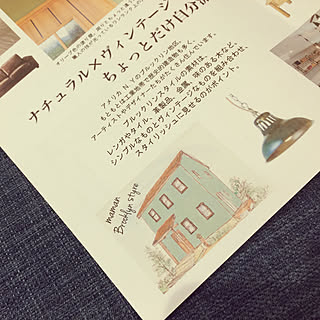 ナチュラル×ヴィンテージ
ちょっとだけ自分
アメリカ N.Yのブルックリン地区。
もともとは工業地帯で歴史的建造物も多く、
アーティストやデザイナーたちがたくさん住んでいます。
ブルックリンスタイルの素材は、
レンガやタイル、革製品、金属、味のある木など。
シンプルなものとヴィンテージなものを組み合わせ、
スタイリッシュに見せるのがポイント。
maman
Brooklyn style